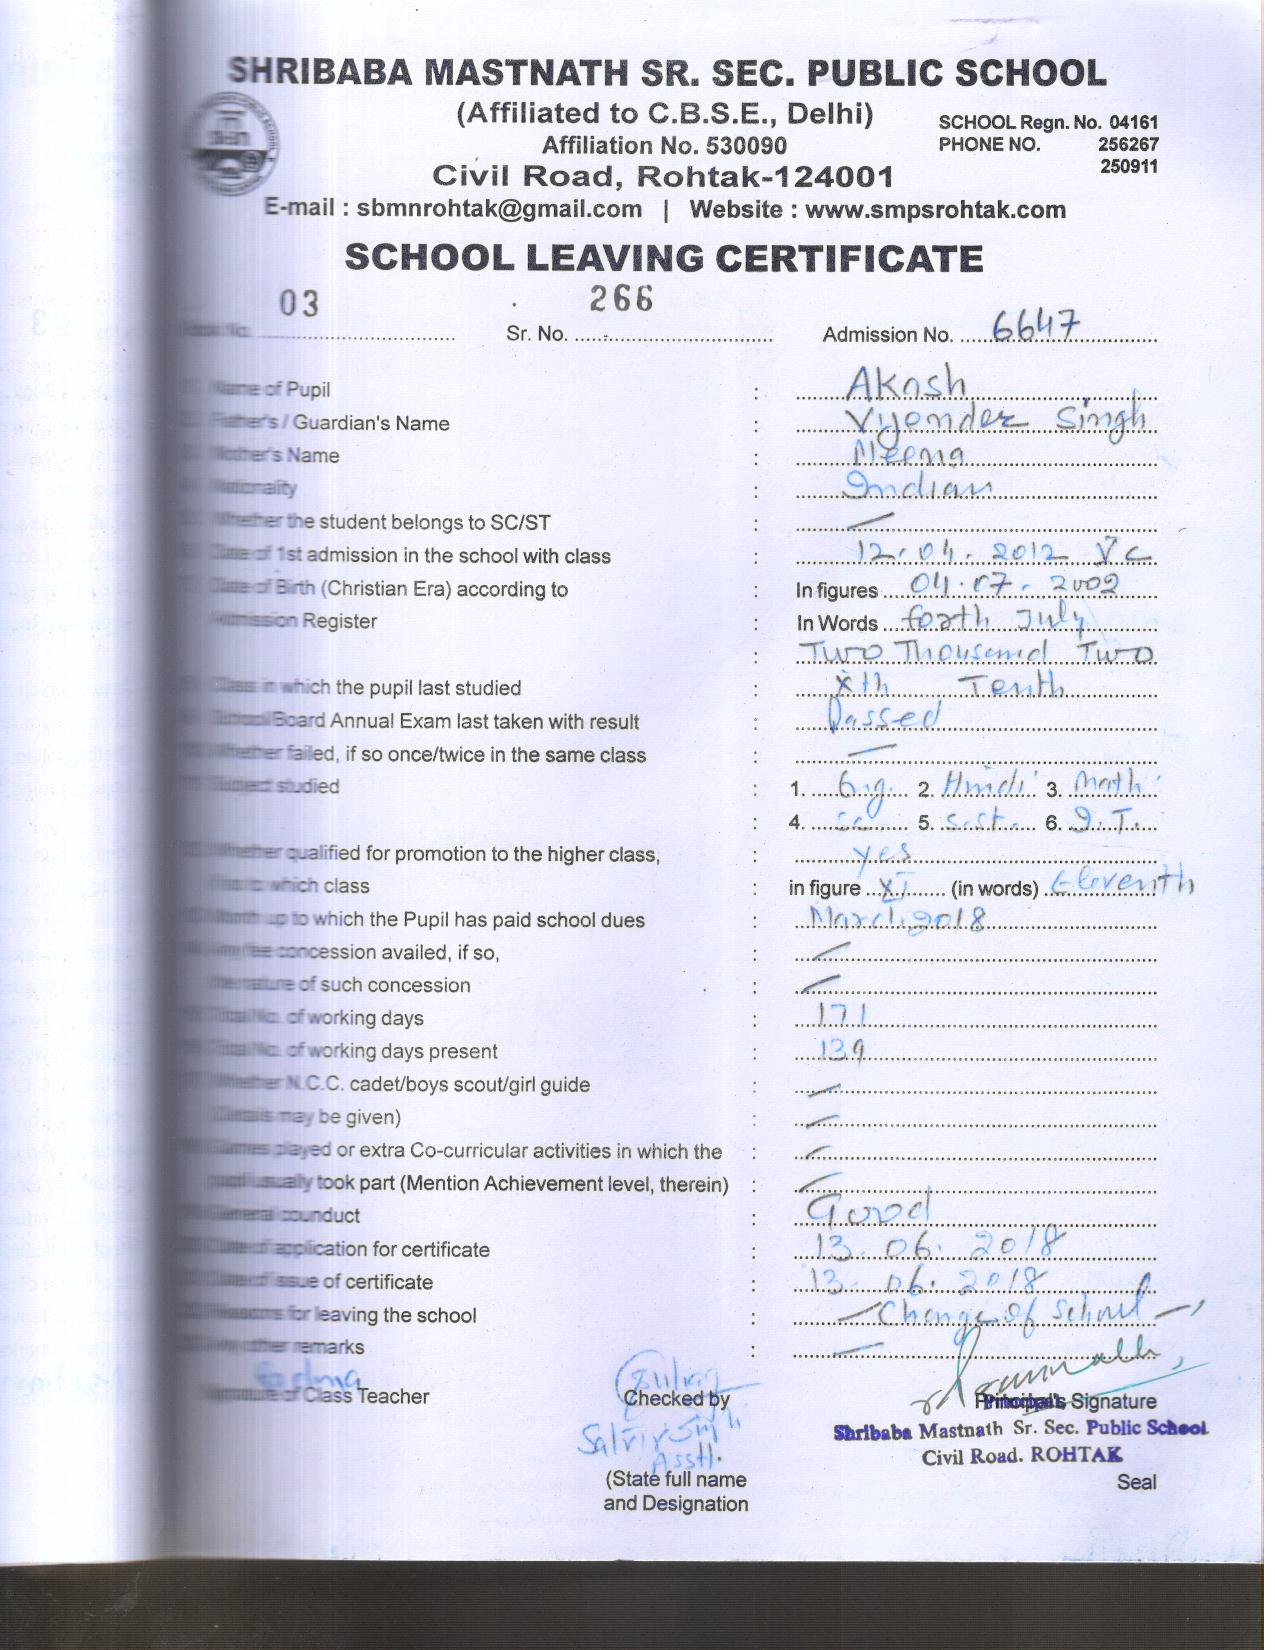 SHRIBABA MASTNATH SR. SEC. PUBLIC SCHOOL
(Affiliated to C.B.S.E., Delhi)
SCHOOL Regn. No. 04161
Affiliation No. 530090
PHONE NO. 256267
250911
Civil Road, Rohtak-124001
E-mail : sbmnrohtak@gmail.com | Website : www.smpsrohtak.com
SCHOOL LEAVING CERTIFICATE
03 Sr. No. 266 Admission No. 6647
Name of Pupil : Akash
Father's / Guardian's Name : Vijender Singh
Mother's Name : Meena
Nationality : Indian
Whether the student belongs to SC/ST : —
Date of 1st admission in the school with class : 12.04.2012 V C
Date of Birth (Christian Era) according to : In figures 04.07.2002
Admission Register : In Words forth July
: Two Thousand Two
Class in which the pupil last studied : Xth Tenth
School/Board Annual Exam last taken with result : Passed
Whether failed, if so once/twice in the same class : —
Subject studied : 1. Eng. 2. Hindi 3. Math
: 4. Sc 5. S.St. 6. I.T.
Whether qualified for promotion to the higher class, : yes
which class : in figure XI (in words) Eleventh
Month up to which the Pupil has paid school dues : March, 2018
Any fee concession availed, if so, : —
the nature of such concession : —
Total No. of working days : 171
Total No. of working days present : 139
Whether N.C.C. cadet/boys scout/girl guide : —
(Details may be given) : —
Games played or extra Co-curricular activities in which the : —
pupil usually took part (Mention Achievement level, therein) : —
General counduct : Good
Date of application for certificate : 13.06.2018
Date of issue of certificate : 13.06.2018
Reasons for leaving the school : — Change of School —
Any other remarks : —
Signature of Class Teacher Checked by Principal's Signature
Shribaba Mastnath Sr. Sec. Public School
Civil Road. ROHTAK
Asstt.
(State full name Seal
and Designation